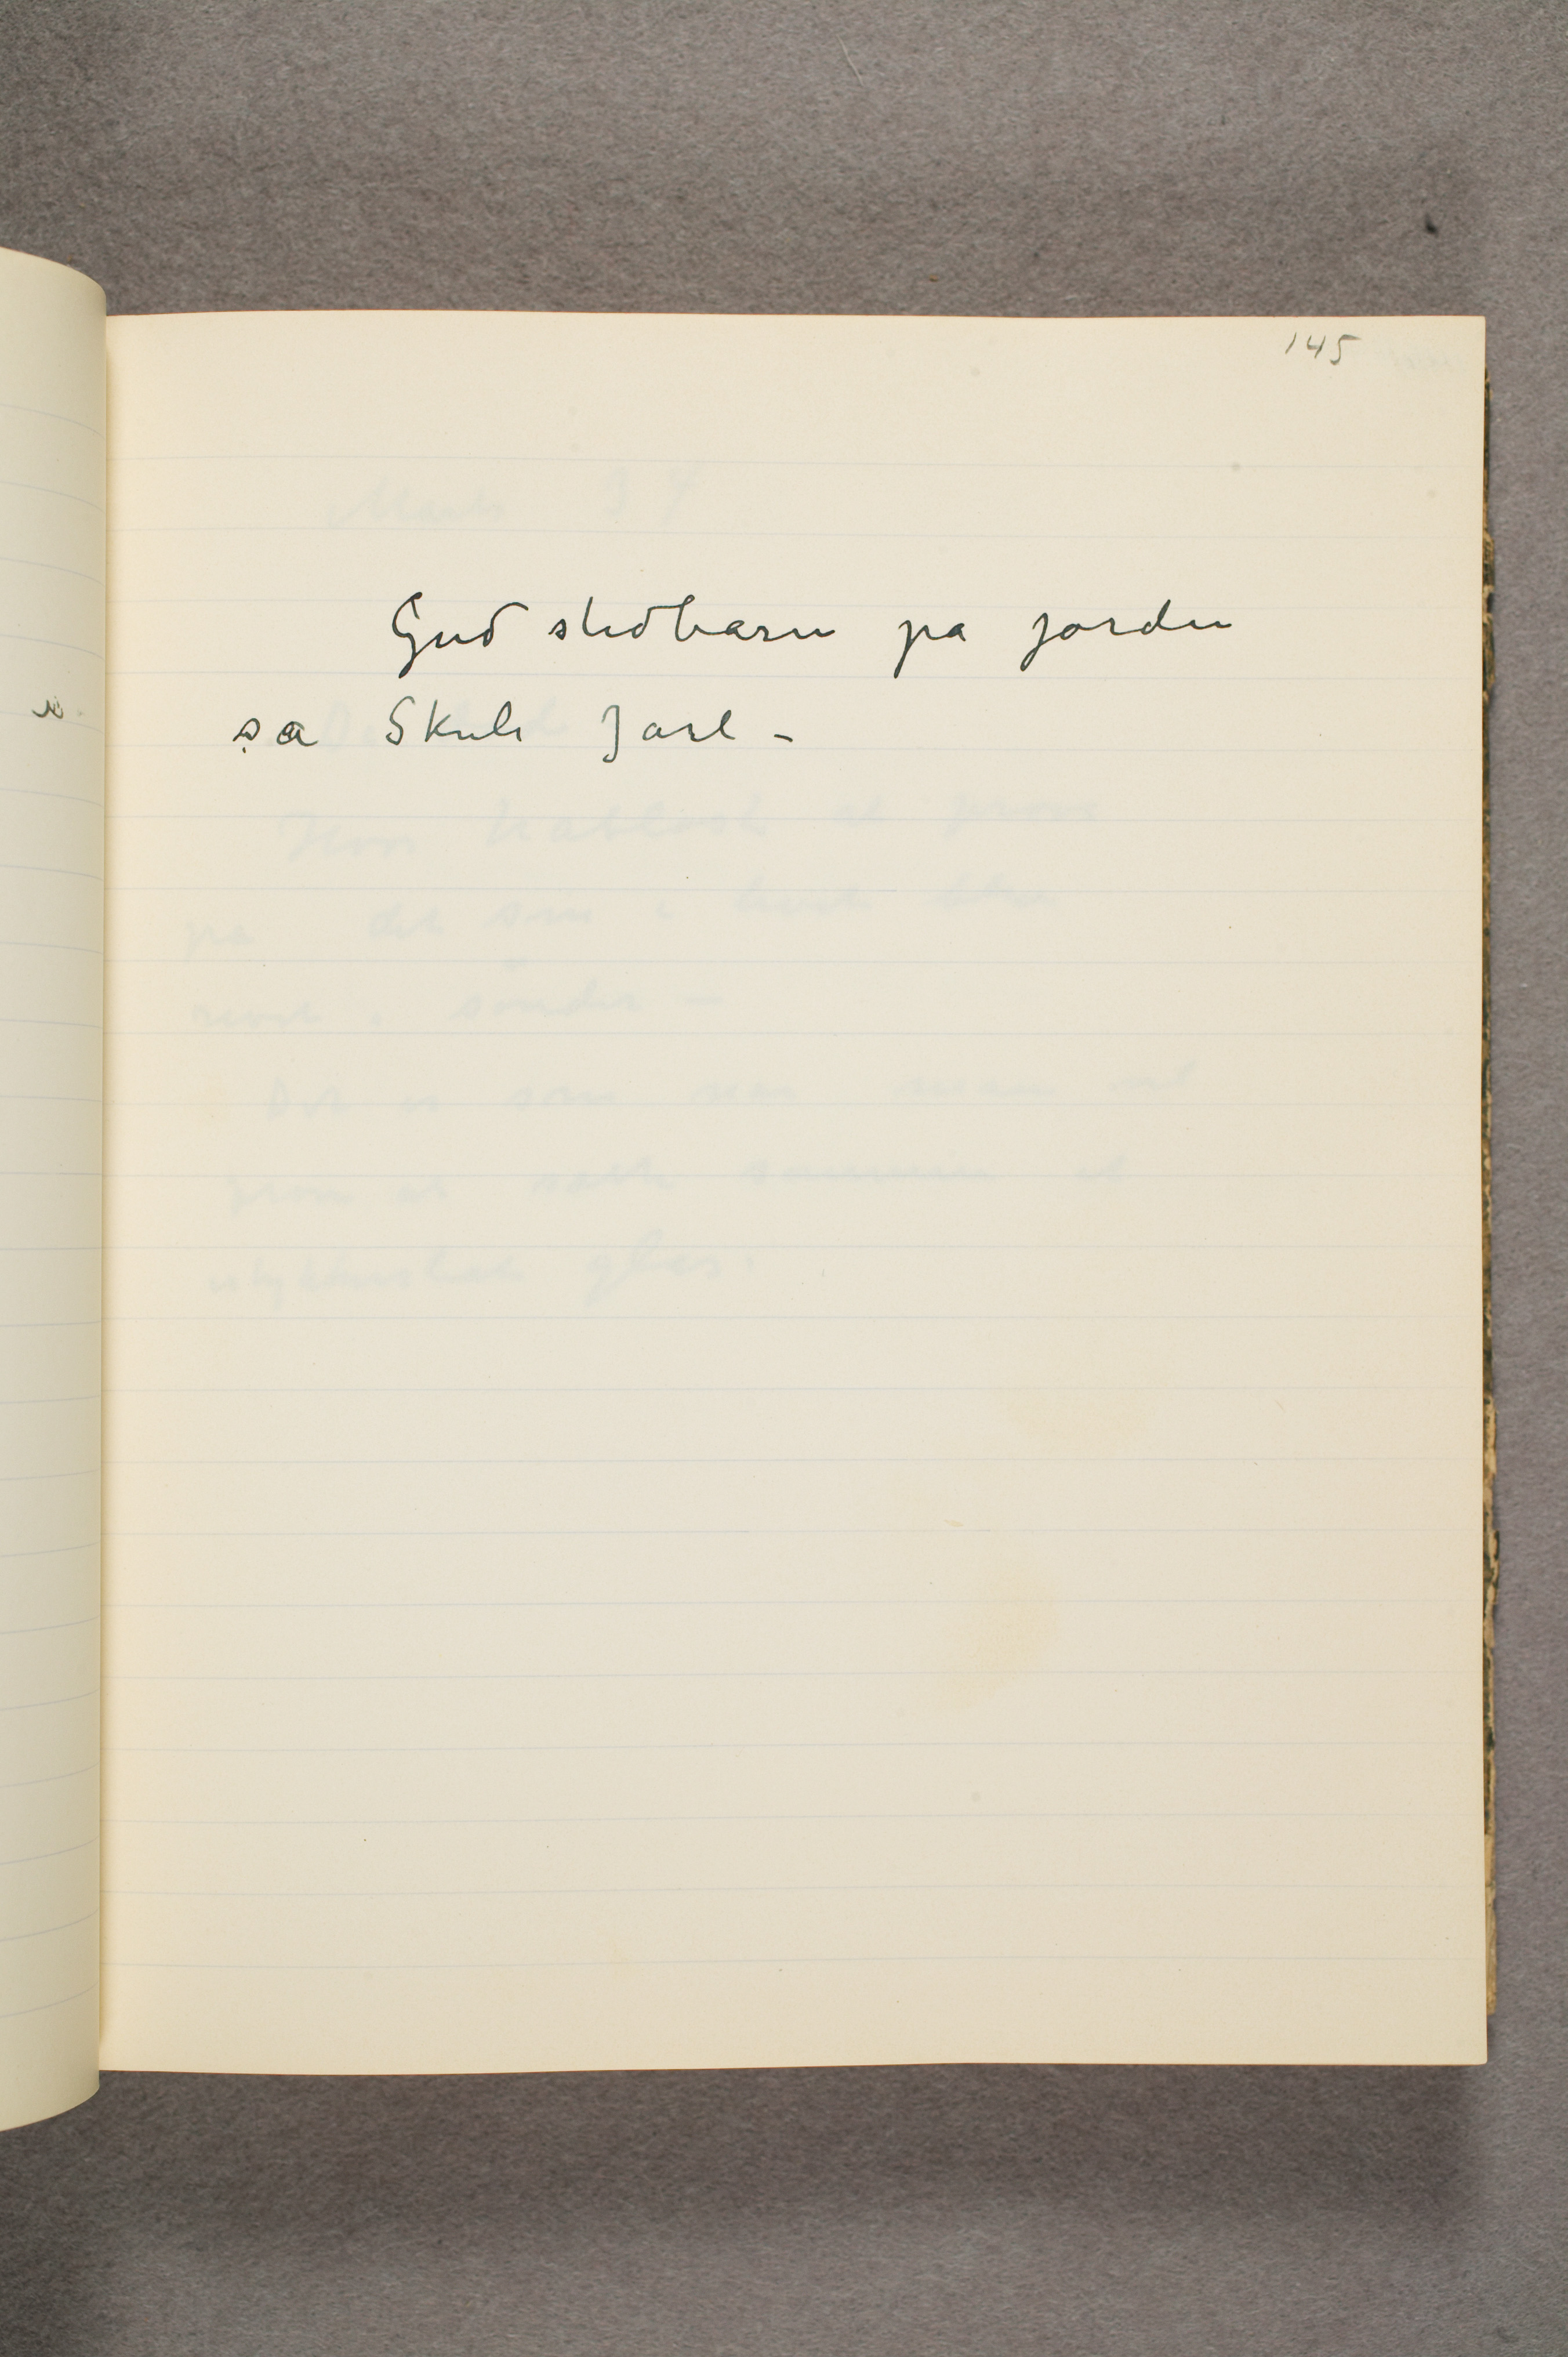 145
Gud stedbarn pa jorden
sa Skule Jarl –